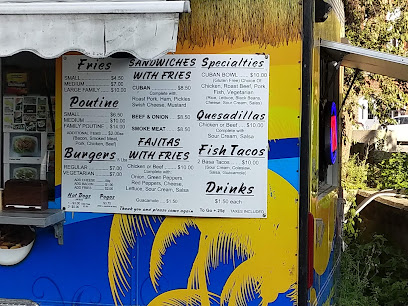 Fries
SMALL $4.50
MEDIUM $7.00
LARGE FAMILY $10.00
Poutine
SMALL $6.50
MEDIUM $10.00
FAMILY POUTINE $14.00
ADDITIONAL TOPPINGS
(Bacon, Smoked Meat,
Pork, Chicken, Beef)
Burgers
REGULAR $7.00
VEGETARIAN $7.00
Hot Dogs Pogos
SANDWICHES
WITH FRIES
CUBAN $8.50
Complete with:
Roast Pork, Ham, Pickles
Swiss Cheese, Mustard
BEEF & ONION $8.50
SMOKE MEAT $8.50
FAJITAS
WITH FRIES
Chicken or Beef $10.00
Complete with:
Onion, Green Peppers,
Red Peppers, Cheese,
Lettuce, Sour Cream, Salsa
Guacamole $1.50
Specialties
CUBAN BOWL $10.00
(Gluten Free) Choice Of:
Chicken, Roast Beef, Pork
Fish, Vegetarian
(Rice, Lettuce, Black Beans,
Cheese, Sour Cream, Salsa)
Quesadillas
Chicken or Beef $10.00
Complete with
Sour Cream, Salsa
Fish Tacos
2 Basa Tacos $10.00
(Sour Cream, Coleslaw,
Salsa, Guacamole)
Drinks
$1.50 each
Thank you and please come again To Go • 25¢ TAXES INCLUDED